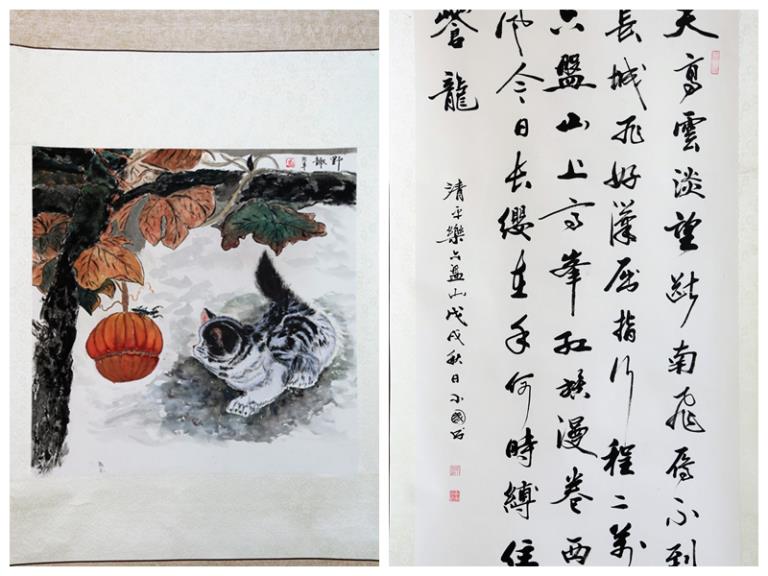 野趣
天高雲淡望斷南飛雁不到
長城非好漢屈指行程二萬
六盤山上高峯紅旗漫卷西
風今日長纓在手何時縛住
蒼龍
清平樂六盤山戊戌秋日小國書